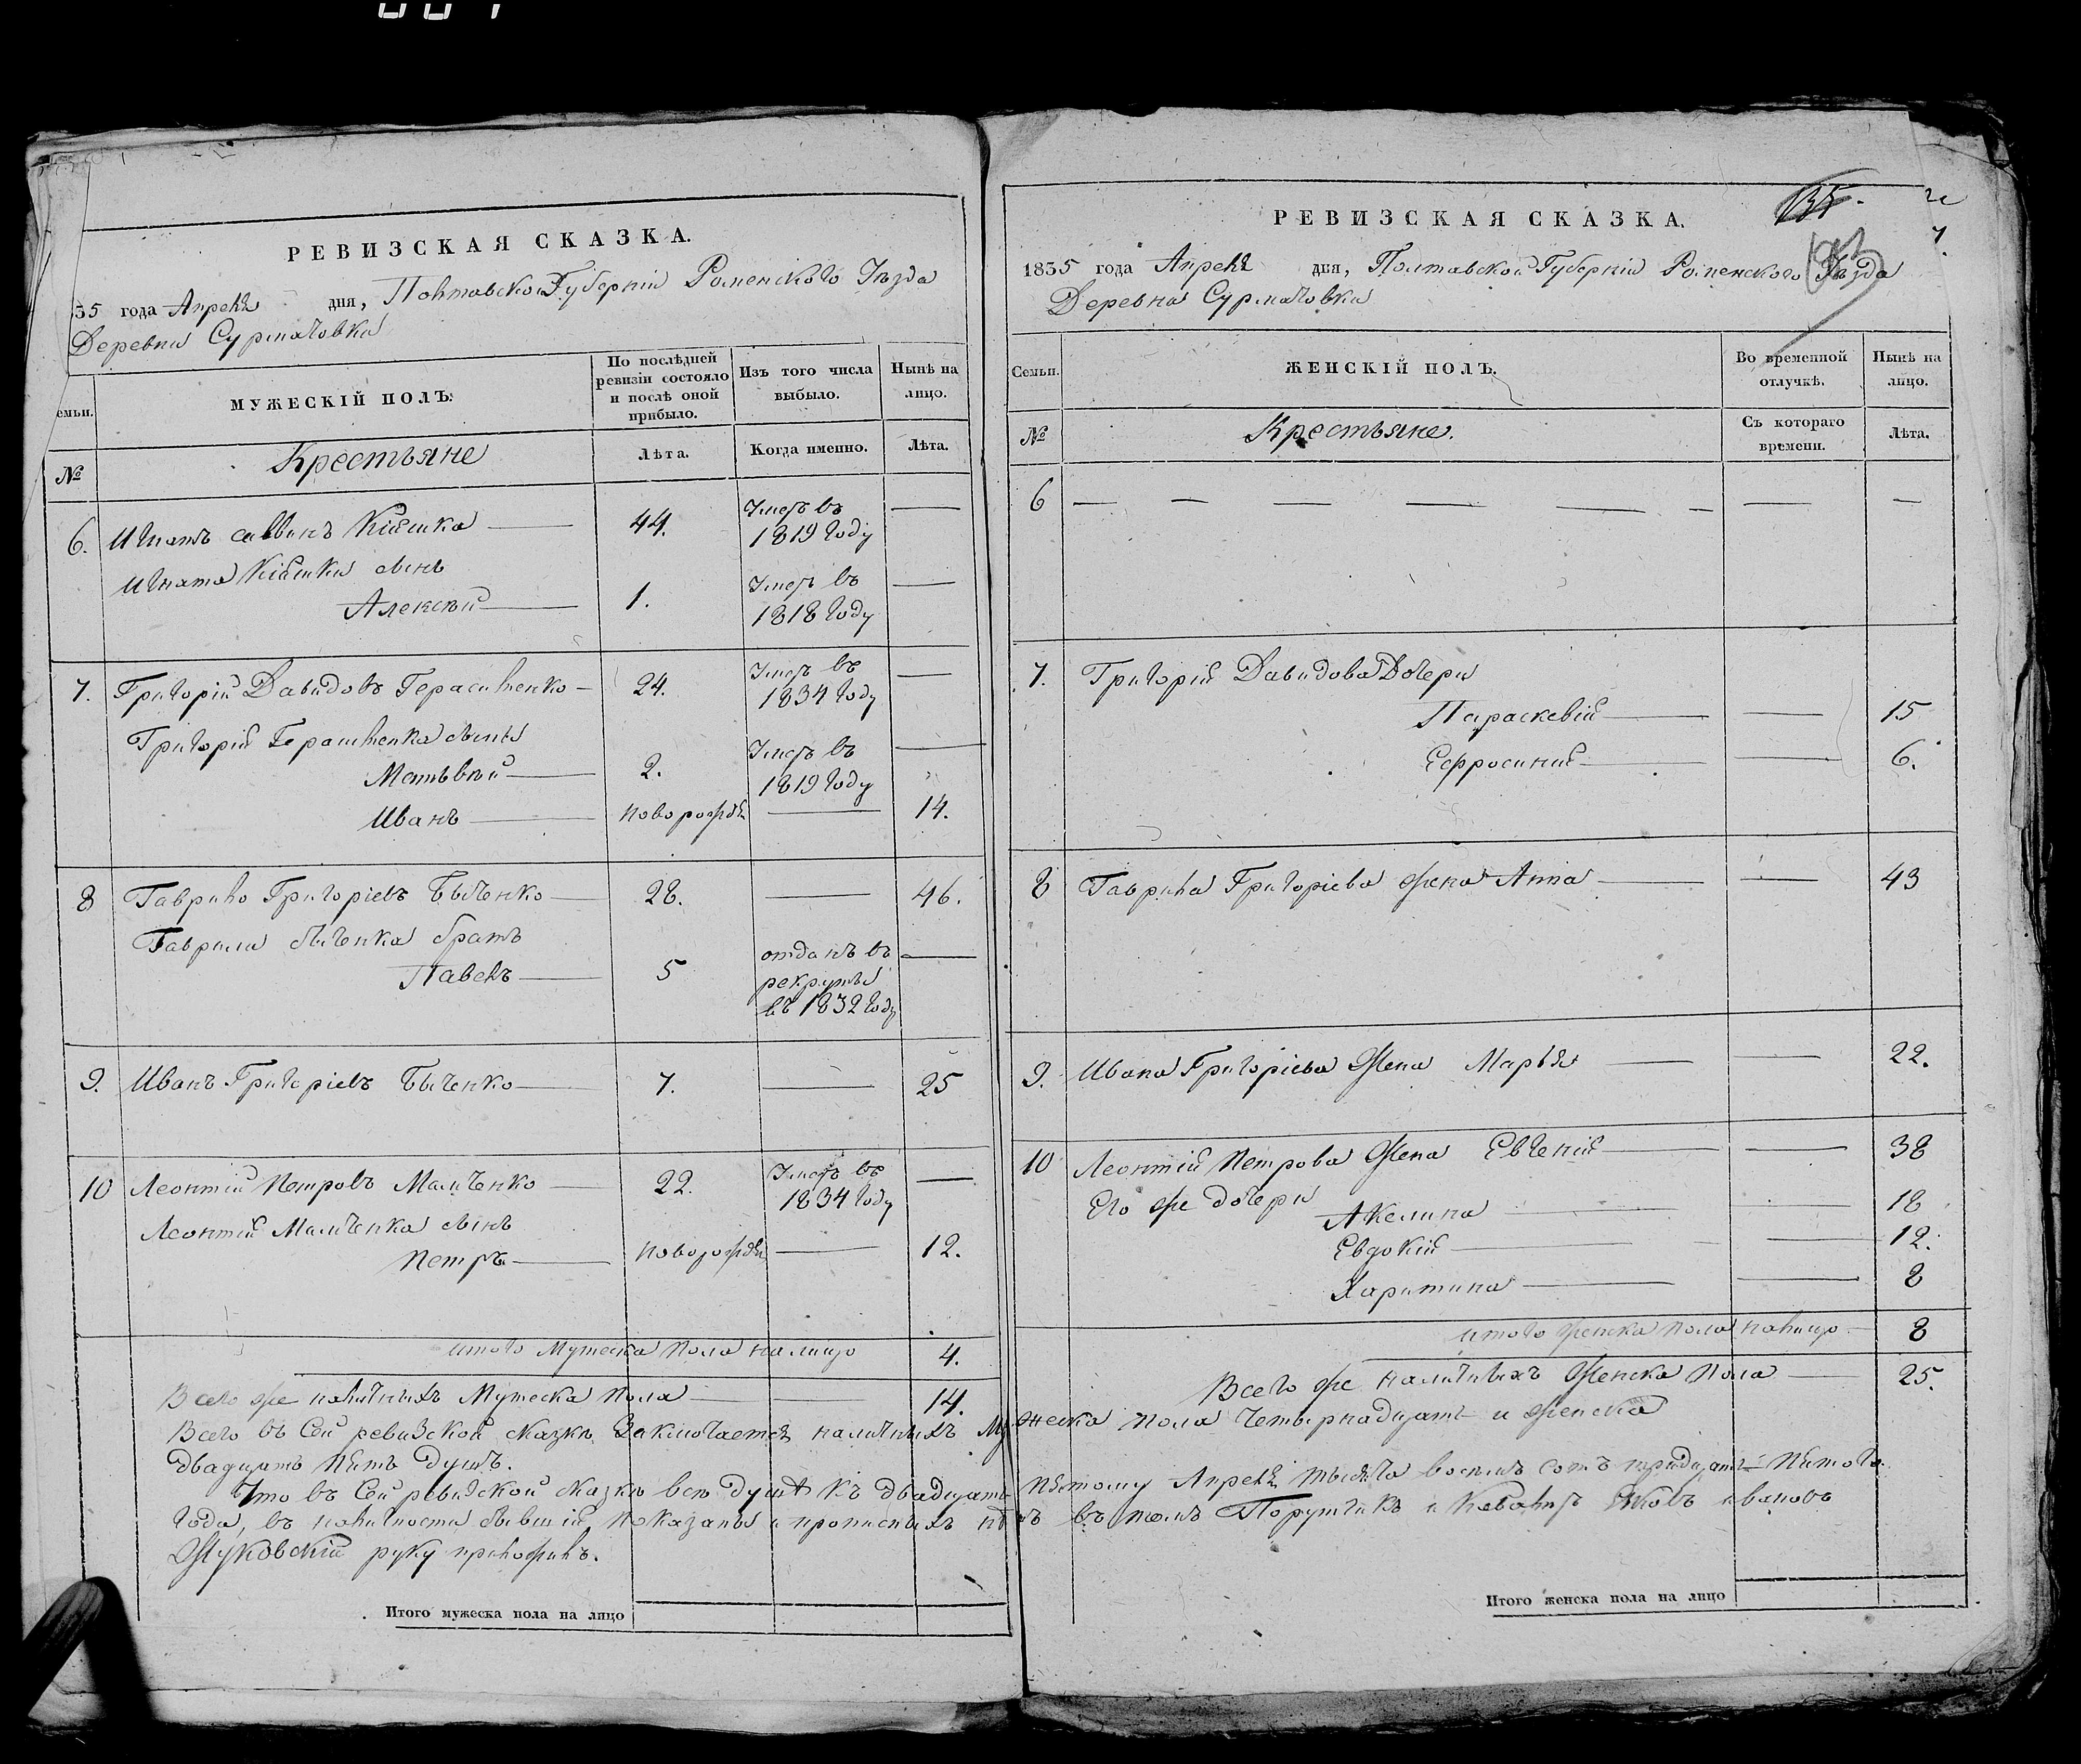 РЕВИЗСКАЯ СКАЗКА.
35 года Апреля дня, Полтавской Губернiи Роменского Уезда
Деревни Сурмачовки
емьи.
МУЖЕСКIЙ ПОЛЪ.
По послѣдней ревизiи состояло и послѣ оной прибыло.
Изъ того числа выбыло.
Нынѣ на лицо.
№
Крестьяне
Лѣта.
Когда именно.
Лѣта.
6. Игнатъ саввинъ Кiяшка 44. Умеръ въ 1819 году
Игната Кiяшки сынъ
Алексѣй 1. Умеръ въ 1818 году
7. Григорiй Давидовъ Герасименко 24. Умеръ въ 1834 году
Григорiя Герасименка сыны
Матьвѣй 2. Умеръ въ 1819 году
Иванъ новорожде 14.
8 Гаврило Григорiевъ Быченко 28. 46.
Гаврила быченка братъ
Павелъ 5 отданъ въ рекруты въ 1832 году
9. Иванъ Григорiевъ Быченко 7. 25
10 Леонтiй Петровъ Мамченко 22. Умеръ въ 1834 году
Леонтiя Мамченка сынъ
Петръ новорожде 12.
итого Мужеска пола налицо 4.
Всего же наличныхъ Мужеска пола 14.
РЕВИЗСКАЯ СКАЗКА.
1835 года Апреля дня, Полтавской Губернiи Роменского Уезда
Деревни Сурмачовки
Семьи.
ЖЕНСКIЙ ПОЛЪ.
Во временной отлучкѣ.
Нынѣ на лицо.
№
Крестьяне.
Съ котораго времени.
Лѣта.
6
7. Григорiя Давидова Дочери
Параскевiя 15
Ефросинiя 6.
8 Гаврила Григорiева жена Анна 43
9. Ивана Григорiева Жена Марья 22.
10 Леонтiя Петрова Жена Евгенiя 38
Его же дочери
Акелина 18
Евдокiя 12.
Харитина 8
итого женска пола налицо 8
Всего же наличныхъ Женска пола 25.
Всего въ Сей ревизской сказкѣ Заключается наличныхъ Мужеска пола Четырнадцать и женска
двадцать пять душъ.
Что въ Сей ревизской сказкѣ всѣ души къ двадцать пятому Апреля тысяча восемь сотъ тридцать пятого
года, въ наличности бывшiя показаны и прописныхъ нѣтъ въ томъ Порутчикъ и Кавалеръ Яковъ ивановъ
Жуковскiй руку приложилъ.
Итого мужеска пола на лицо
Итого женска пола на лицо